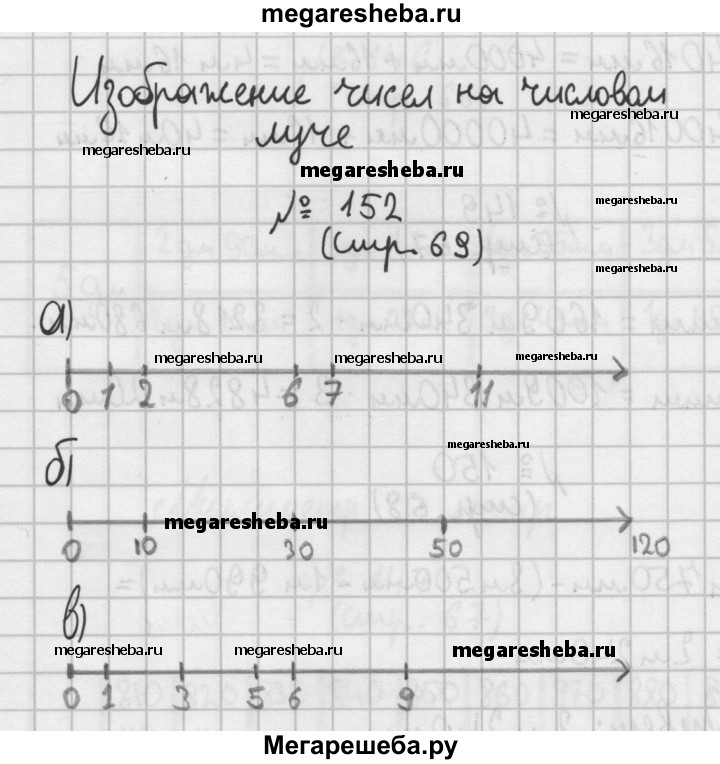 megaresheba.ru
Изображение чисел на числовом
megaresheba.ru
луче
megaresheba.ru
megaresheba.ru
№ 152
megaresheba.ru
(стр. 69)
megaresheba.ru
а)
megaresheba.ru megaresheba.ru megaresheba.ru
0 1 2 6 7 11
megaresheba.ru
б)
megaresheba.ru
0 10 30 50 120
в)
megaresheba.ru megaresheba.ru megaresheba.ru
0 1 3 5 6 9
Мегарешеба.ру